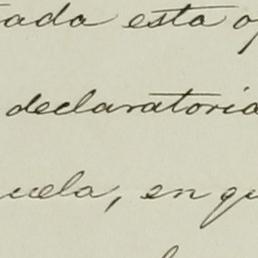 tada esta o
declaratoria
uela, en qu